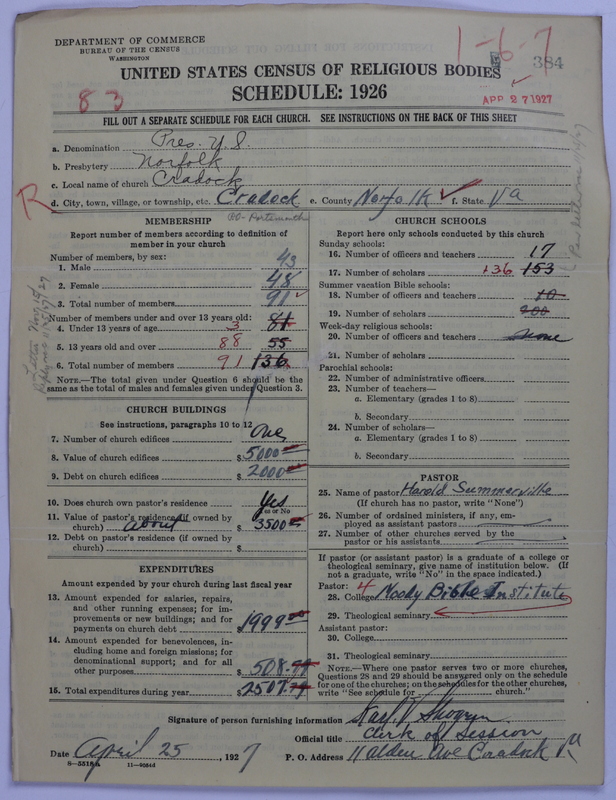 DEPARTMENT OF COMMERCE
BUREAU OF THE CENSUS
WASHINGTON
1-6-7
384
UNITED STATES CENSUS OF RELIGIOUS BODIES
SCHEDULE: 1926
83
APR 27 1927
FILL OUT A SEPARATE SCHEDULE FOR EACH CHURCH. SEE INSTRUCTIONS ON THE BACK OF THIS SHEET
a. Denomination Pres. U.S.
b. Presbytery Norfolk
c. Local name of church Cradock
R
d. City, town, village, or township, etc. Cradock e. County Norfolk f. State Va
PO- Portsmouth
MEMBERSHIP
Report number of members according to definition of
member in your church
Number of members, by sex:
1. Male 43
2. Female 48
3. Total number of members 91
Number of members under and over 13 years old:
4. Under 13 years of age 3 81
5. 13 years old and over 88 55
6. Total number of members 91 136
NOTE.—The total given under Question 6 should be the
same as the total of males and females given under Question 3.
CHURCH BUILDINGS
See instructions, paragraphs 10 to 12
7. Number of church edifices One
8. Value of church edifices $ 5000
9. Debt on church edifices $ 2000
10. Does church own pastor's residence Yes
Yes or No
11. Value of pastor's residence (if owned by
church) about $ 3500
12. Debt on pastor's residence (if owned by
church) $
EXPENDITURES
Amount expended by your church during last fiscal year
13. Amount expended for salaries, repairs,
and other running expenses; for im-
provements or new buildings; and for
payments on church debt $ 1999.00
14. Amount expended for benevolences, in-
cluding home and foreign missions; for
denominational support; and for all
other purposes $ 508.79
15. Total expenditures during year $ 2507.79
CHURCH SCHOOLS
Report here only schools conducted by this church
Sunday schools:
16. Number of officers and teachers 17
17. Number of scholars 136 153
Summer vacation Bible schools:
18. Number of officers and teachers 10
19. Number of scholars 200
Week-day religious schools:
20. Number of officers and teachers none
21. Number of scholars
Parochial schools:
22. Number of administrative officers
23. Number of teachers—
a. Elementary (grades 1 to 8)
b. Secondary
24. Number of scholars—
a. Elementary (grades 1 to 8)
b. Secondary
PASTOR
25. Name of pastor Harold Summerville
(If church has no pastor, write "None")
26. Number of ordained ministers, if any, em-
ployed as assistant pastors
27. Number of other churches served by the
pastor or his assistants
If pastor (or assistant pastor) is a graduate of a college or
theological seminary, give name of institution below. (If
not a graduate, write "No" in the space indicated.)
Pastor: 4
28. College Moody Bible Institute
29. Theological seminary
Assistant pastor:
30. College
31. Theological seminary
NOTE.—Where one pastor serves two or more churches,
Questions 28 and 29 should be answered only on the schedule
for one of the churches; on the schedules for the other churches,
write "See schedule for church."
Signature of person furnishing information
Official title Clerk of Session
Date April 25, 1927
P. O. Address 11 Alden Ave Cradock Va
8-5518a 11-9034d